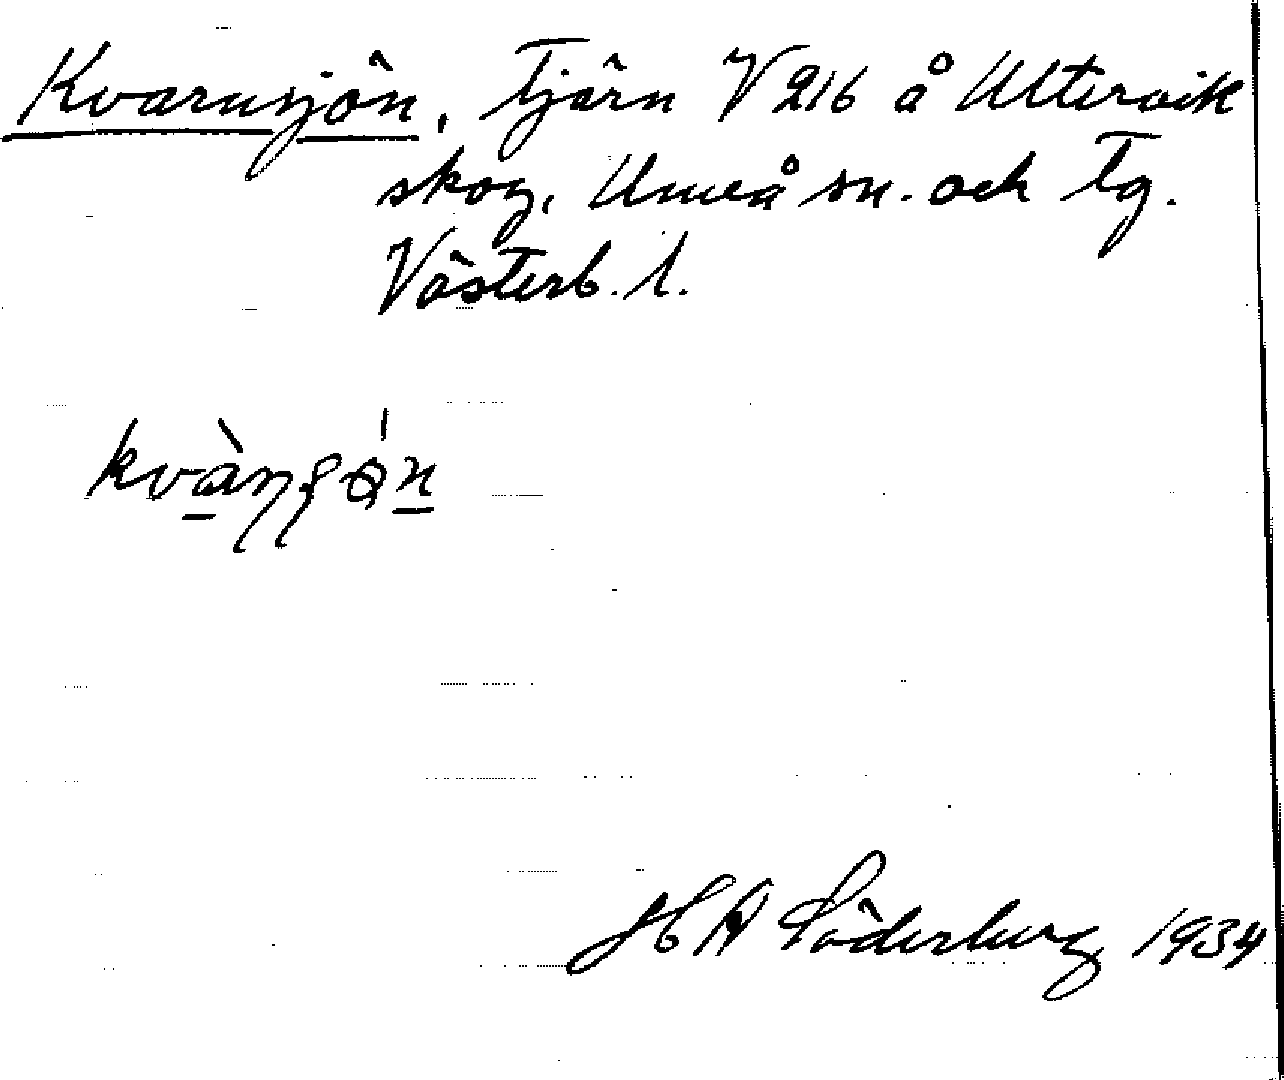 Kvarnsjön, Tjärn V 216 å Ultervik
skog, Umeå sn. och Tg.
Västerb. l.
H A Söderberg 1934